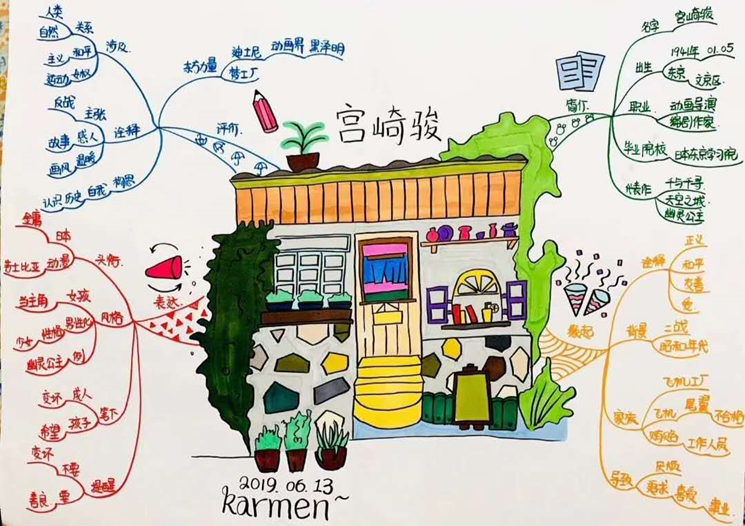 宫崎骏
2019.06.13
karmen~
评价
涉及
人类
自然
关系
主义
和平
运动
女权
东方力量
迪士尼
动画界
黑泽明
梦工厂
诠释
反战
主张
故事
感人
画风
温暖
认识
历史
自我
构思
简介
名字
宫崎骏
出生
1941年
01.05
东京
文京区
职业
动画导演
编剧作家
毕业院校
日本东京学习院
代表作
千与千寻
天空之城
幽灵公主
表达
头衔
日本
动漫
风格
当主角
女孩
男性化
性格
少女
幽灵公主
笔下
变坏
成人
希望
孩子
提醒
变坏
不要
善良
要
崛起
诠释
正义
和平
友善
爱
背景
二战
昭和年代
家庭
飞机工厂
飞机
尾翼
不合格
工作人员
导致
追求
喜爱
事业